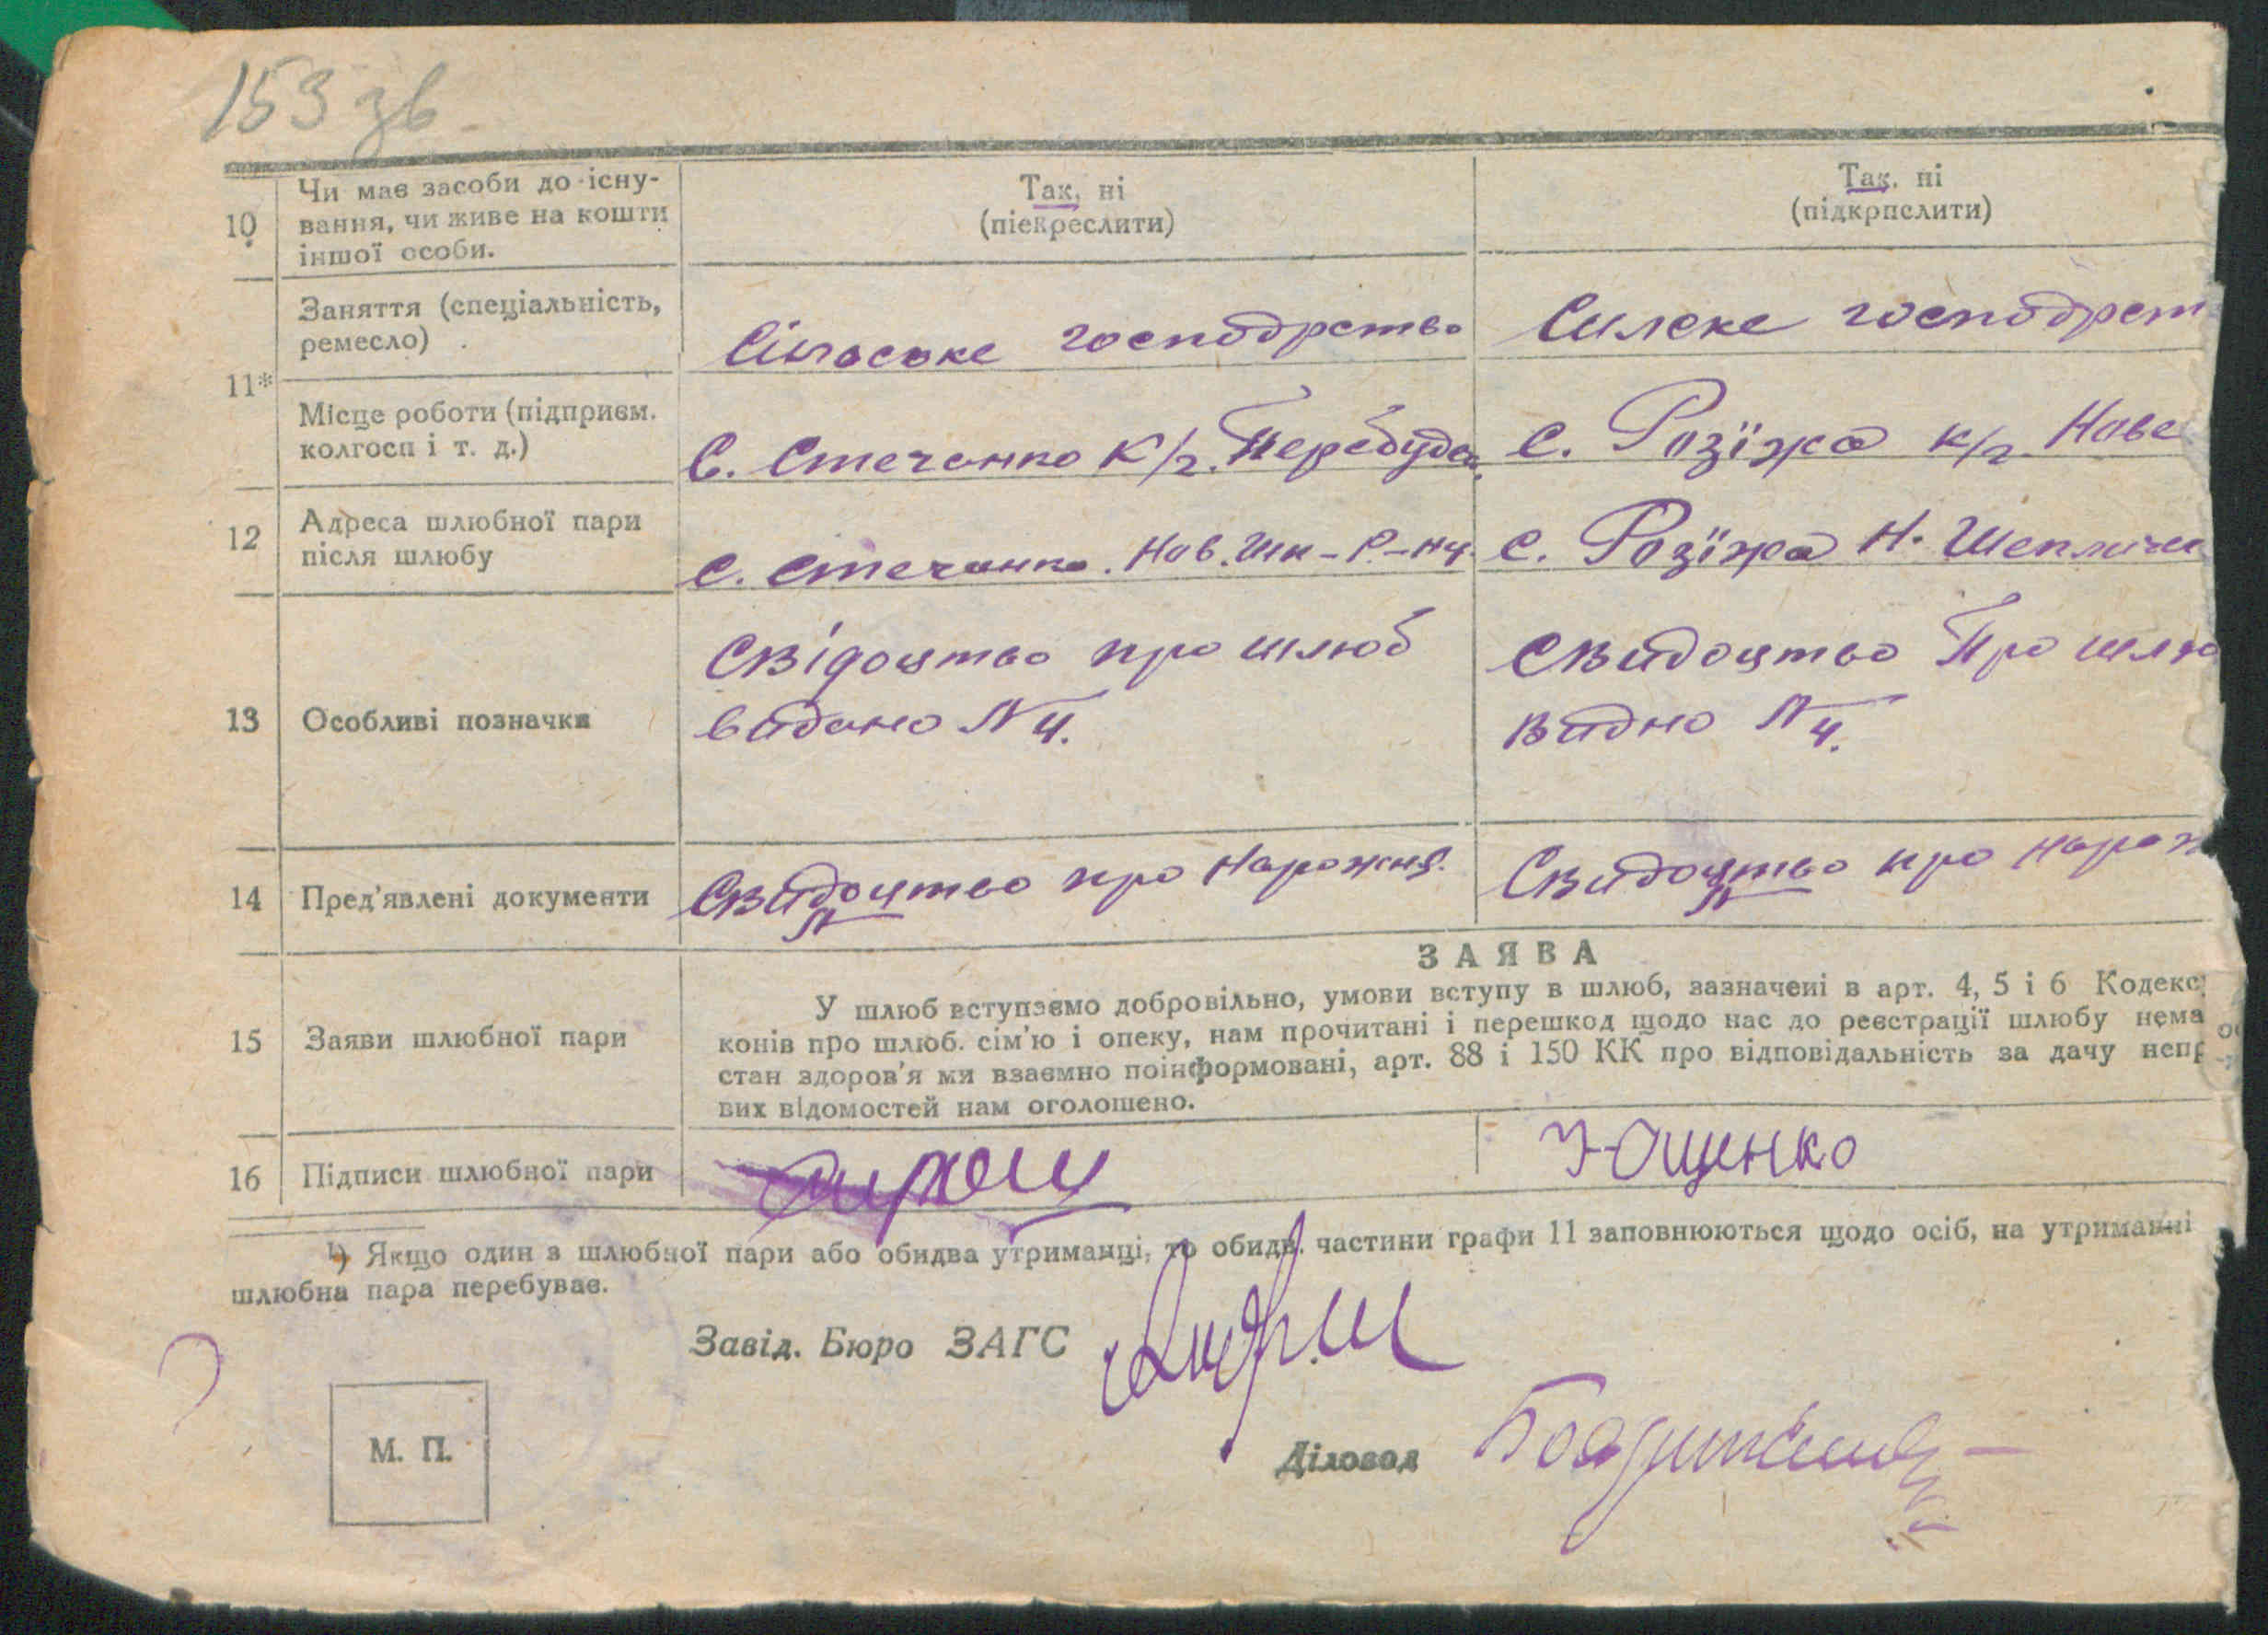 153 зв
10 Чи має засоби до існу-
вання, чи живе на кошти
іншої особи.
Так, ні
(піекреслити)
Так, ні
(підкрпслити)
11* Заняття (спеціальність,
ремесло)
Сільське господрство
Силске господрст
Місце роботи (підприєм.
колгосп і т. д.)
С. Стечанко К/г. Перебудов
с. Розїжа к/г. Нове
12 Адреса шлюбної пари
після шлюбу
с. Стечанко. Нов. Шп-Р-ну.
с. Розїжа Н. Шепличе
13 Особливі позначки
Свідоцтво про шлюб
видано № 4.
Свидоцтво Про шлю
видно № 4.
14 Пред'явлені документи
Свидоцтво про Нарожня.
Свидоцтво про нарож
ЗАЯВА
15 Заяви шлюбної пари
У шлюб вступаємо добровільно, умови вступу в шлюб, зазначені в арт. 4, 5 і 6 Кодекс
конів про шлюб. сім'ю і опеку, нам прочитані і перешкод щодо нас до реєстрації шлюбу нема
стан здоров'я ми взаємно поінформовані, арт. 88 і 150 КК про відповідальність за дачу непр
вих відомостей нам оголошено.
16 Підписи шлюбної пари
Ющенко
¹) Якщо один з шлюбної пари або обидва утриманці, то обидв. частини графи 11 заповнюються щодо осіб, на утриманні
шлюбна пара перебуває.
Завід. Бюро ЗАГС
М. П.
Діловод